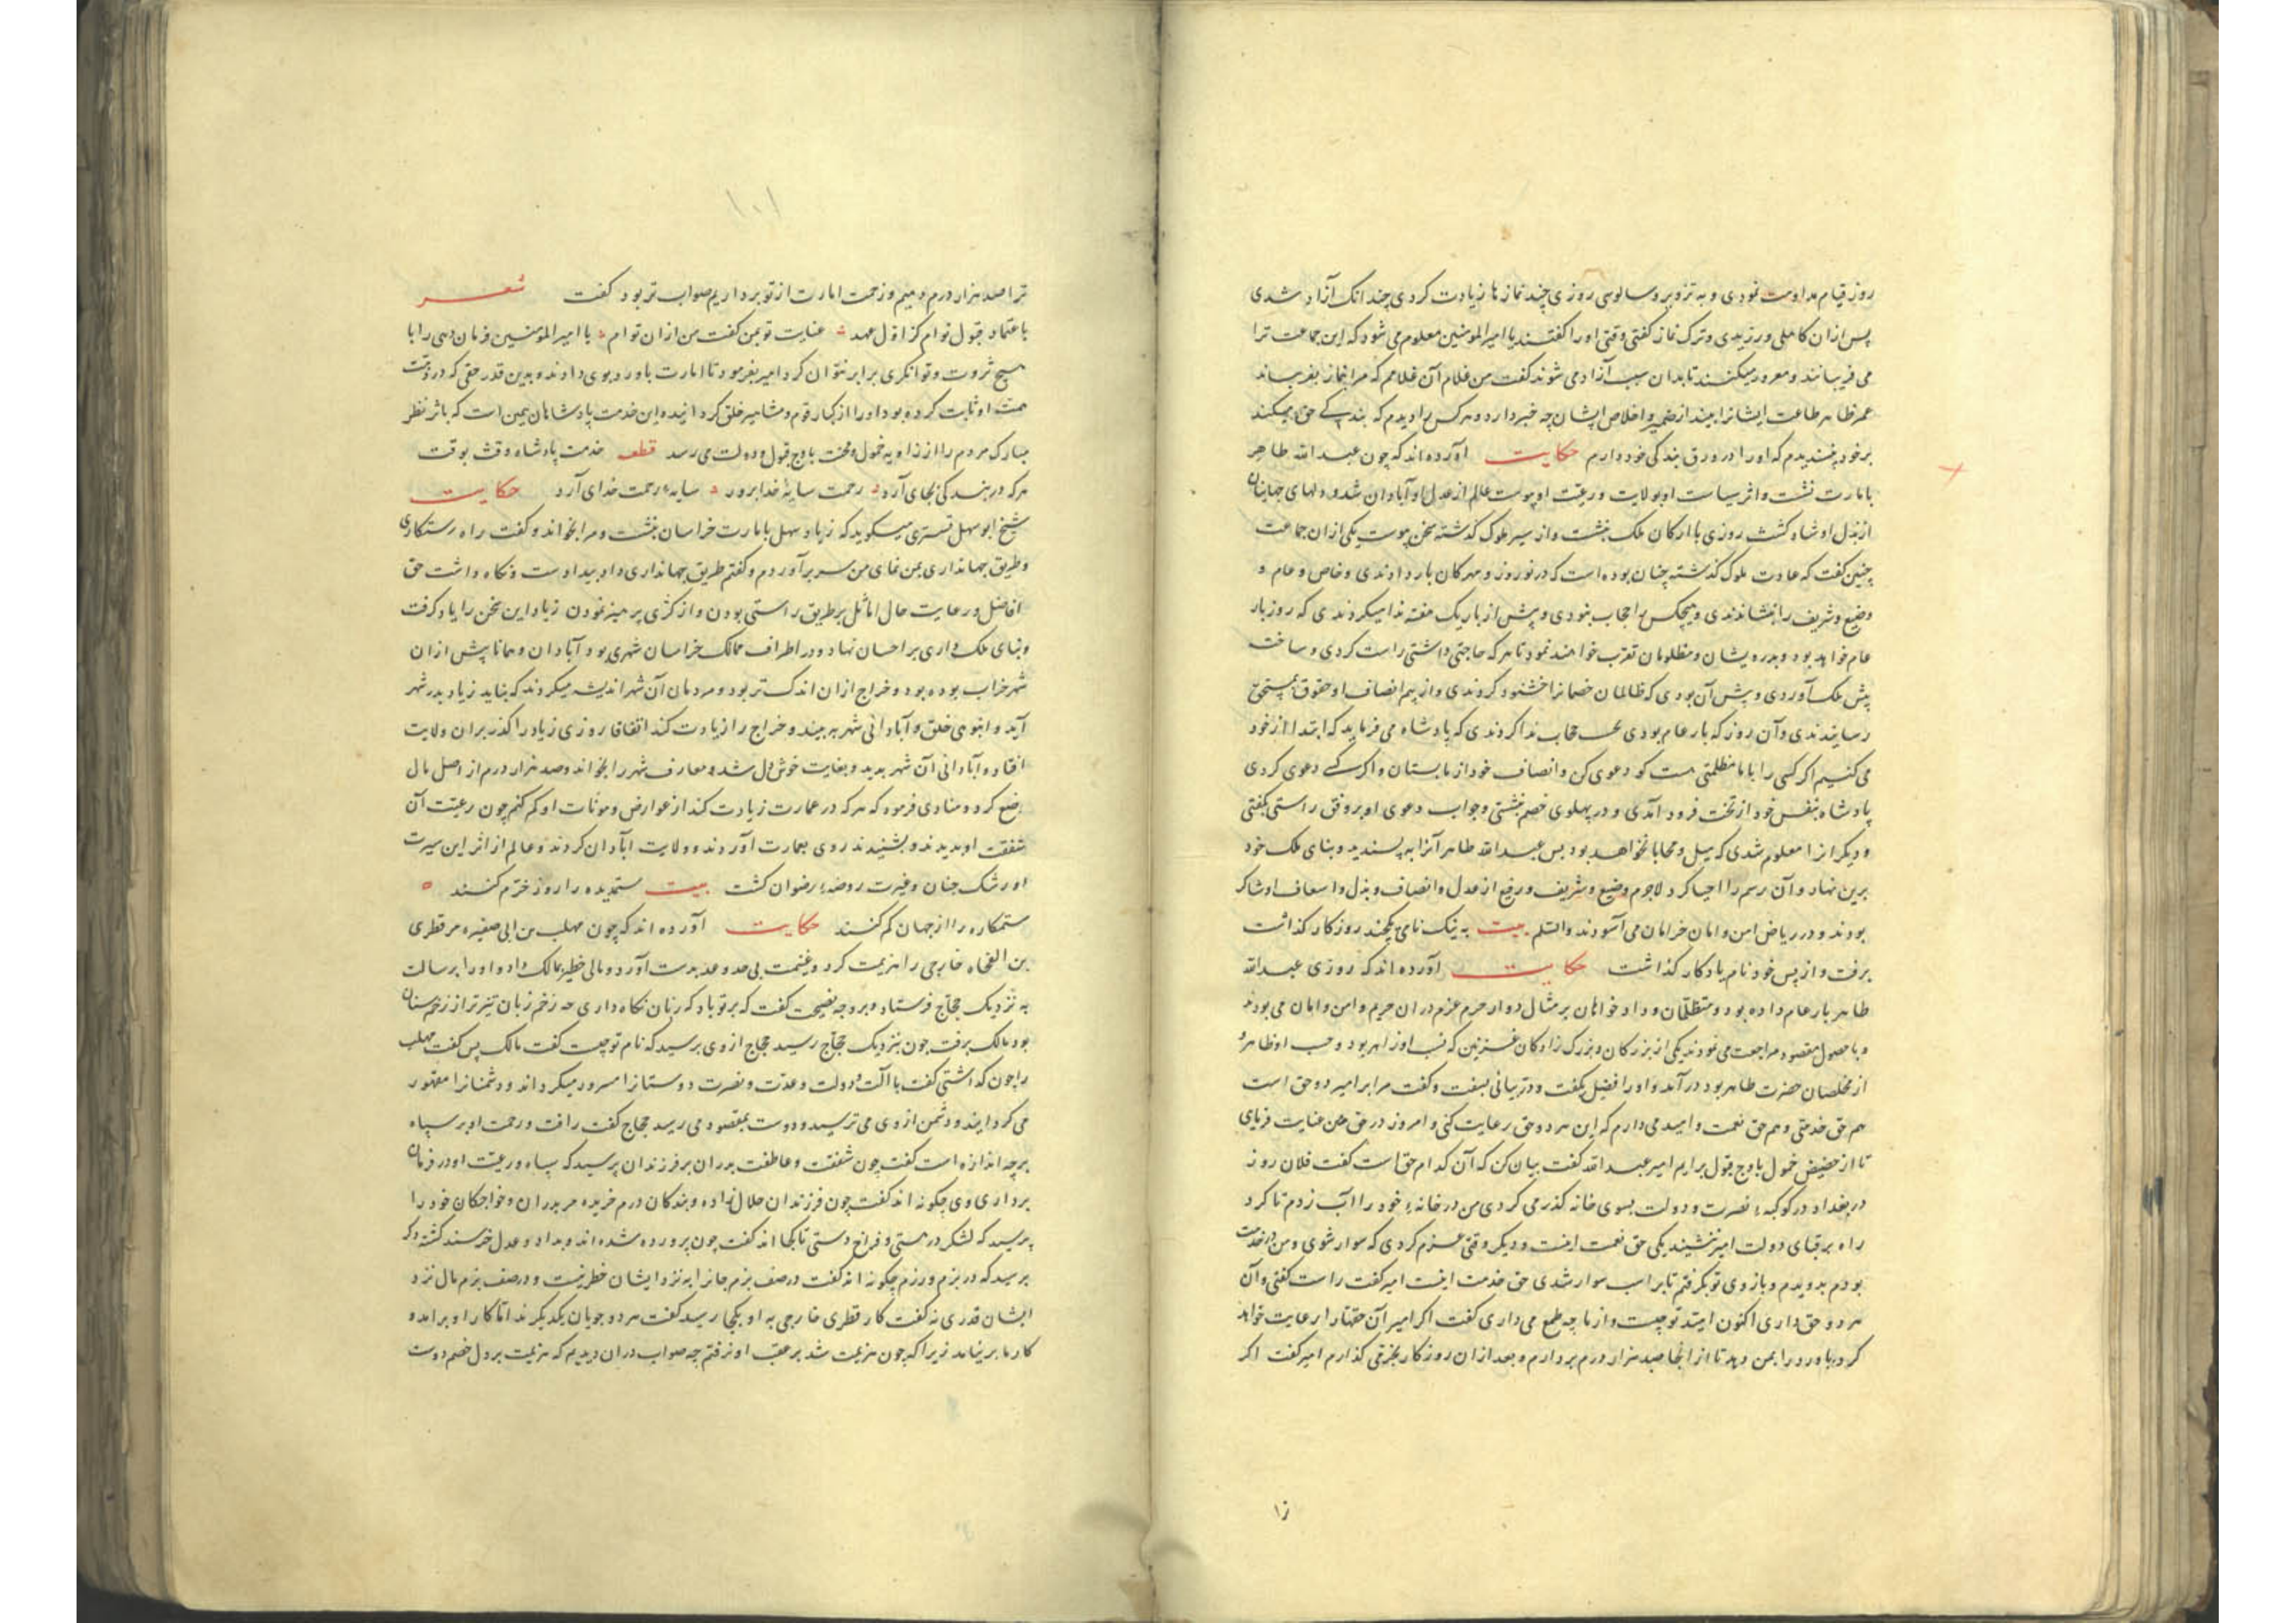 روز قیام مداومت نمودی و به تزویر و سالوسی روزی چند نمازها زیادت کردی چندانک آزاد شدی
پس ازان کاهلی ورزیدی و ترک نماز کفتی وقتی اورا کفتند یا امیرالمومنین معلوم می شود که این جماعت ترا
می فریبانند و مغرور میکنند تا بدان سبب آزاد می شوند کفت من غلام آن غلامم که مرا بنماز بفریباند
عمر ظاهر طاعت ایشانرا بیند از ضمیر و اخلاص ایشان چه خبر دارد و هرکس را دیدم که بندکی حق میکند
برخود پسندیدم که اورا در ورق بندکی خود دارم حکایت آورده اند که چون عبدالله طاهر
بامارت نشست و اثر سیاست او بولایت و رعیت او پیوست عالم از عدل او آبادان شد و دلهای جهانیان
از بذل او شاد کشت روزی با ارکان ملک بنشست و از سیر ملوک کذشته سخن پیوست یکی ازان جماعت
چنین کفت که عادت ملوک کذشته چنان بوده است که در نوروز و مهرکان بار دادندی و خاص و عام و
وضیع و شریف را بنشاندندی و هیچکس را حجاب نبودی و پیش از بار یک هفته ندا میکردندی که روز بار
عام خواهد بود و بدرویشان و مظلومان تقرب خواهند نمود تا هرکه حاجتی داشتی راست کردی و ساخت
پیش ملک آوردی و پیش آن بودی که ظالمان خصمانرا خشنود کردندی و از بیم انصاف او حقوق بمستحق
رسانیدندی و آن روز که بار عام بودی حجاب ندا کردندی که پادشاه می فرماید که ابتدا از خود
می کنیم اکر کسی را با ما مظلمتی هست کو دعوی کن و انصاف خود از ما بستان و اکر کسی دعوی کردی
پادشاه بنفس خود از تخت فرود آمدی و در پهلوی خصم نشستی و جواب دعوی او بر وفق راستی بکفتی
و دیکرانرا معلوم شدی که میل و محابا نخواهد بود پس عبدالله طاهر آنرا به پسندید و بنای ملک خود
برین نهاد و آن رسم را احیا کرد لاجرم وضیع و شریف و رفیع از عدل و انصاف و بذل و اسعاف او شاکر
بودند و در ریاض امن و امان خرامان می آسودند والسلم بیت به نیک نامی یکچند روزکار کذاشت
برفت و از پس خود نام یادکار کذاشت حکایت آورده اند که روزی عبدالله
طاهر بار عام داده بود و متظلمان و دادخواهان بر مثال دوار حرم عزم دران حریم و امن و امان می بودند
و با حصول مقصود مراجعت می نمودند یکی از بزرکان و بزرک زادکان که نسب او زاهر بود و حسب او ظاهر و
از مخلصان حضرت طاهر بود درآمد و اورا فضل بکفت و در بیانی بسفت و کفت مرا بر امیر دو حق است
هم حق خدمتی و هم حق نعمت و امید می دارم که این هردو حق رعایت کنی و امروز در حق من عنایت فرمای
تا از حضیض خمول باوج قبول برایم امیر عبدالله کفت بیان کن که آن کدام حق است کفت فلان روز
در بغداد در کوکبه نصرت و دولت بسوی خانه کذر می کردی من در خانه خود را آب زدم تا کرد
راه بر قبای دولت امیر ننشیند یکی حق نعمت اینست و دیکر وقتی عزم کردی که سوار شوی و من در خدمت
بودم بدویدم و بازوی تو بکرفتم تا بر اسب سوار شدی حق خدمت اینست امیر کفت راست کفتی و آن
هردو حق داری اکنون امید تو چیست و از ما چه طمع می داری کفت اکر امیر آن حقها را رعایت خواهد
کرد باورد را بمن دهد تا از انجا صد هزار درم بردارم و بعد ازان روزکار بخرمی کذارم امیر کفت اکر
زا
۱۰۱
ترا صد هزار درم دهیم و زحمت امارت از تو برداریم صواب تر بود کفت شعر
باعتماد قبول توام کز اول عهد عنایت تو بمن کفت من از ان توام یا امیرالمومنین فرمان دهی را با
هیچ ثروت و توانکری برابر نتوان کرد امیر بفرمود تا امارت باورد بوی دادند و بدین قدر حقی که در ذمت
همت او ثابت کرده بود اورا از کبار قوم و مشاهیر خلق کردانید و این خدمت پادشاهان همین است که باثر نظر
مبارک مردم را از زاویه خمول و محنت باوج قبول و دولت می رسد قطعه خدمت پادشاه وقت بوقت
هرکه در بندکی بجای آرد رحمت سایه خدا برود سایه رحمت خدای آرد حکایت
شیخ ابو سهل تستری میکوید که زیاد سهل بامارت خراسان بنشست و مرا بخواند و کفت راه رستکاری
و طریق جهانداری بمن نمای من سر برآوردم و کفتم طریق جهانداری داد بیدادست و نکاه داشت حق
افاضل و رعایت حال اماثل بر طریق راستی بودن و از کژی پرهیز نمودن زیاد این سخن را یاد کرفت
و بنای ملک داری بر احسان نهاد و در اطراف ممالک خراسان شهری بود آبادان و همانا پیش ازان
شهر خراب بوده بود و خراج ازان اندک تر بود و مردمان آن شهر اندیشه میکردند که نباید زیاد بدر شهر
آید و انبوهی خلق و آبادانی شهر به بیند و خراج را زیادت کند اتفاقا روزی زیاد را کذر بران ولایت
افتاد و آبادانی آن شهر بدید و بغایت خوش دل شد و معارف شهر را بخواند و صد هزار درم از اصل مال
وضع کرد و منادی فرمود که هرکه در عمارت زیادت کند از عوارض و مونات او کم کنم چون رعیت آن
شفقت او بدیدند و بشنیدند روی بعمارت آوردند و ولایت آبادان کردند و عالم از اثر این سیرت
او رشک جنان و غیرت روضه رضوان کشت بیت ستمدیده را روز خرم کنند
ستمکاره را از جهان کم کنند حکایت آورده اند که چون مهلب بن ابی صفره مر قطری
بن الفجاه خارجی را هزیمت کرد و غنیمت بی حد و عد بدست آورد و مالی خطیر بمالک داد و اورا برسالت
به نزدیک حجاج فرستاد و بر وجه نصیحت کفت که بر تو باد که زبان نکاه داری که زخم زبان تیزتر از زخم سنان
بود مالک برفت چون بنزدیک حجاج رسید حجاج از وی پرسید که نام تو چیست کفت مالک پس کفت مهلب
را چون کذاشتی کفت با آلت و دولت و عدت و نصرت دوستانرا مسرور میکرداند و دشمنانرا مقهور
می کرداند و دشمن از وی می ترسید و دوست بمقصود می رسید حجاج کفت رافت و رحمت او بر سپاه
بر چه اندازه است کفت چون شفقت و عاطفت پدران بر فرزندان پرسید که سپاه و رعیت او در فرمان
برداری وی چکونه اند کفت چون فرزندان حلال زاده و بندکان درم خریده مر پدران و خواجکان خود را
پرسید که لشکر در هستی و فراخ دستی تا بکجا اند کفت چون پرورده شده اند و بداد و عدل خرسند کشته دکر
پرسید که در بزم و رزم چکونه اند کفت در صف رزم جانرا بنزد ایشان خطر نیست و در صف بزم مال نزد
ایشان قدری نه کفت کار قطری خارجی به او بکجا رسید کفت هردو جویان یکدیکرند اما کار او برآمد و
کار ما برنیامد زیرا که چون هزیمت شد بر عقب او نرفتم چه صواب دران دیدیم که هزیمت بر دل خصم دوست